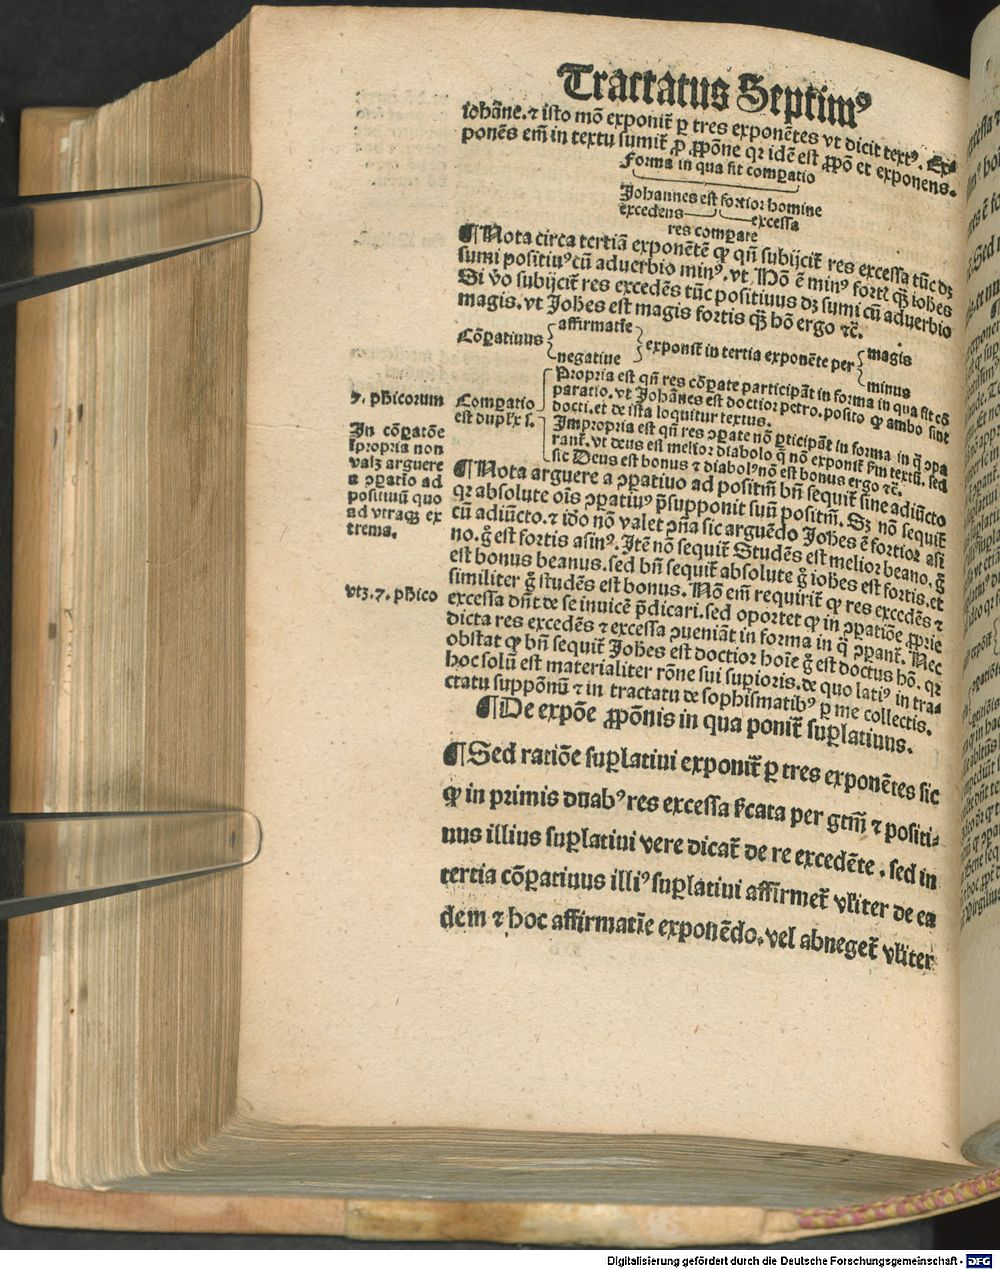 Tractatus Septimꝰ
iohāne.⁊ isto mō exponit̄ ꝑ tres exponētes vt dicit textꝰ. Ex⸗
ponēs em̄ in textu sumit̄ ꝓ ꝓpōne qꝛ idē est ꝓpō et exponens.
Forma in qua fit cōꝑatio
Johannes est fortior homine
excedens excessa
res compare
¶Nota circa tertiā exponētē ꝙ qn̄ subijcit̄ res excessa tūc dꝫ
sumi positiuꝰ cū aduerbio minꝰ. vt. Hō ē minꝰ fort̄ ꝙ̄ iohes
Si v̄o subijcit̄ res excedēs tūc positiuus dꝫ sumi cū aduerbio
magis. vt Johes est magis fortis ꝙ̄ hō ergo ⁊c̄.
Cōꝑatiuus
affirmatīe
negatiue
exponit̄ in tertia exponēte per
magis
minus
Cōꝑatio
est duplx̄ s.
Propria est qn̄ res cōꝑate participāt in forma in qua fit cō
paratio. vt Johānes est doctior petro. posito ꝙ ambo sint
docti. et de ista loquitur textus.
Impropria est qn̄ res ꝯꝑate nō ꝑticipāt in forma in q̄ ꝯꝑa
rant̄. vt deus est melior diabolo q̄ nō exponit̄ ẜm textū. sed
sic Deus est bonus ⁊ diabolꝰ nō est bonus ergo ⁊c̄.
¶Nota arguere a ꝯꝑatiuo ad positm̄ bn̄ sequit̄ sine adiūcto
qꝛ absolute oīs ꝯꝑatiuꝰ p̄supponit suū positm̄. Sꝫ nō sequit̄
cū adiūcto. ⁊ iō nō valet ꝯn̄a sic arguēdo Johes ē fortior asi
no. g̊ est fortis asinꝰ. Itē nō sequit̄ Studēs est melior beano. g̊
est bonus beanus. sed bn̄ sequit̄ absolute g̊ iohes est fortis. et
similiter g̊ studēs est bonus. Nō em̄ requirit̄ ꝙ res excedēs ⁊
excessa dn̄t de se inuicē p̄dicari. sed oportet ꝙ in ꝯꝑatiōe ꝓprie
dicta res excedēs ⁊ excessa ꝯueniāt in forma in q̄ ꝯꝑant̄. Nec
obstat ꝙ bn̄ sequit̄ Johes est doctior hoīe g̊ est doctus hō. qꝛ
hoc solū est materialiter rōne sui suꝑioris. de quo latiꝰ in tra⸗
ctatu suppōnū ⁊ in tractatu de sophismatibꝰ ꝑ me collectis.
¶De expōe ꝓpōnis in qua ponit̄ suꝑlatiuus.
¶Sed ratiōe suꝑlatiui exponit̄ ꝑ tres exponētes sic
ꝙ in primis duabꝰ res excessa ẜcata per gtm̄ ⁊ positi⸗
uus illius suꝑlatiui vere dicat̄ de re excedēte. sed in
tertia cōꝑatiuus illiꝰ suꝑlatiui affirmet̄ vl̄iter de ea
dem ⁊ hoc affirmatīe exponēdo. vel abneget̄ vl̄iter
7. ph̄icorum
In cōꝑatōe
īpropria non
valꝫ arguere
a ꝯꝑatio ad
positiuū quo
ad vtraqꝫ ex
trema.
vtꝫ. 7. ph̄ico
Digitalisierung gefördert durch die Deutsche Forschungsgemeinschaft - DFG